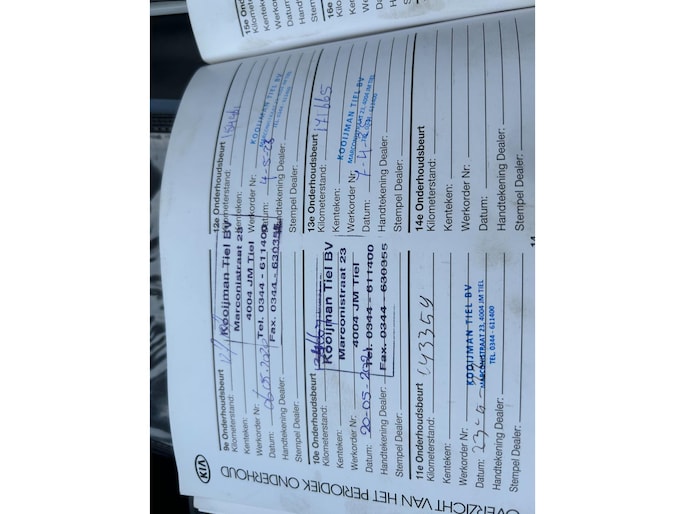 KIA
OVERZICHT VAN HET PERIODIEK ONDERHOUD
9e Onderhoudsbeurt
Kilometerstand:
Kenteken:
Werkorder Nr:
Datum: 06-05-2020
Handtekening Dealer:
Stempel Dealer:
Kooijman Tiel BV
Marconistraat 23
4004 JM Tiel
Tel. 0344 - 611400
Fax. 0344 - 630355
10e Onderhoudsbeurt
Kilometerstand:
Kenteken:
Werkorder Nr:
Datum: 20-05-2021
Handtekening Dealer:
Stempel Dealer:
Kooijman Tiel BV
Marconistraat 23
4004 JM Tiel
Tel. 0344 - 611400
Fax. 0344 - 630355
11e Onderhoudsbeurt
Kilometerstand: 143354
Kenteken:
Werkorder Nr:
Datum: 23-
Handtekening Dealer:
Stempel Dealer:
KOOIJMAN TIEL BV
MARCONISTRAAT 23, 4004 JM TIEL
TEL. 0344 - 611400
12e Onderhoudsbeurt
Kilometerstand:
Kenteken:
Werkorder Nr:
Datum: 4-5-23
Handtekening Dealer:
Stempel Dealer:
KOOIJMAN TIEL BV
MARCONISTRAAT 23, 4004 JM TIEL
TEL. 0344 - 611400
13e Onderhoudsbeurt
Kilometerstand: 171665
Kenteken:
Werkorder Nr:
Datum:
Handtekening Dealer:
Stempel Dealer:
KOOIJMAN TIEL BV
MARCONISTRAAT 23, 4004 JM TIEL
14e Onderhoudsbeurt
Kilometerstand:
Kenteken:
Werkorder Nr:
Datum:
Handtekening Dealer:
Stempel Dealer:
14
15e
Kilometerstand
Kenteken:
Werkorder
Datum:
Handtekening
Stempel
16e